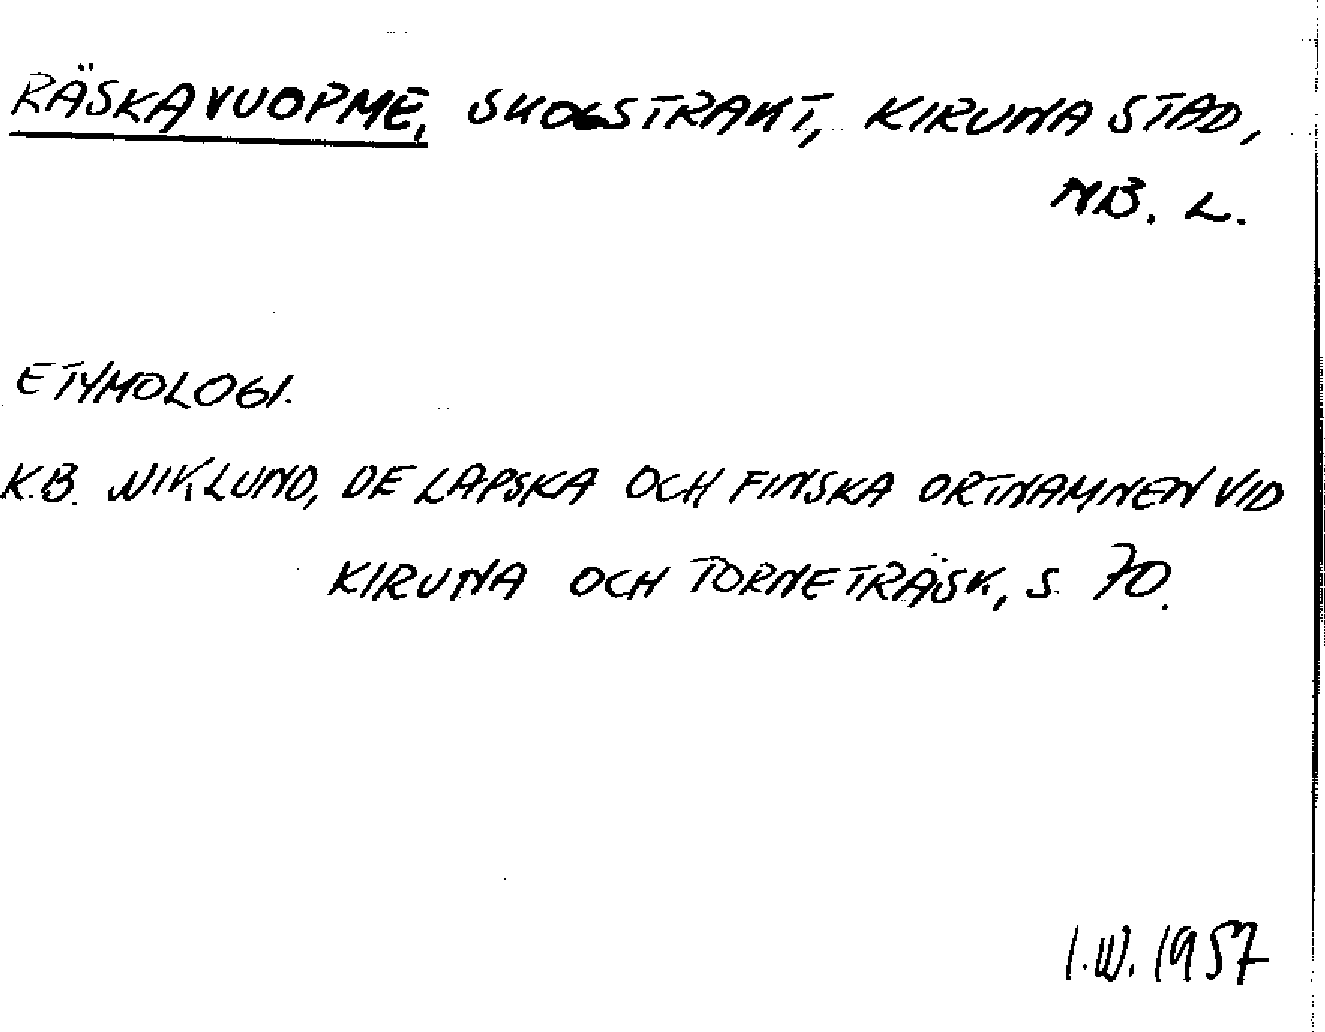 RÄSKAVUOPME, SKOGSTRAKT, KIRUNA STAD,
NB. L.
ETYMOLOGI.
K.B. WIKLUND, DE LAPSKA OCH FINSKA ORTNAMNEN VID
KIRUNA OCH TORNETRÄSK, S. 70.
I.W. 1957